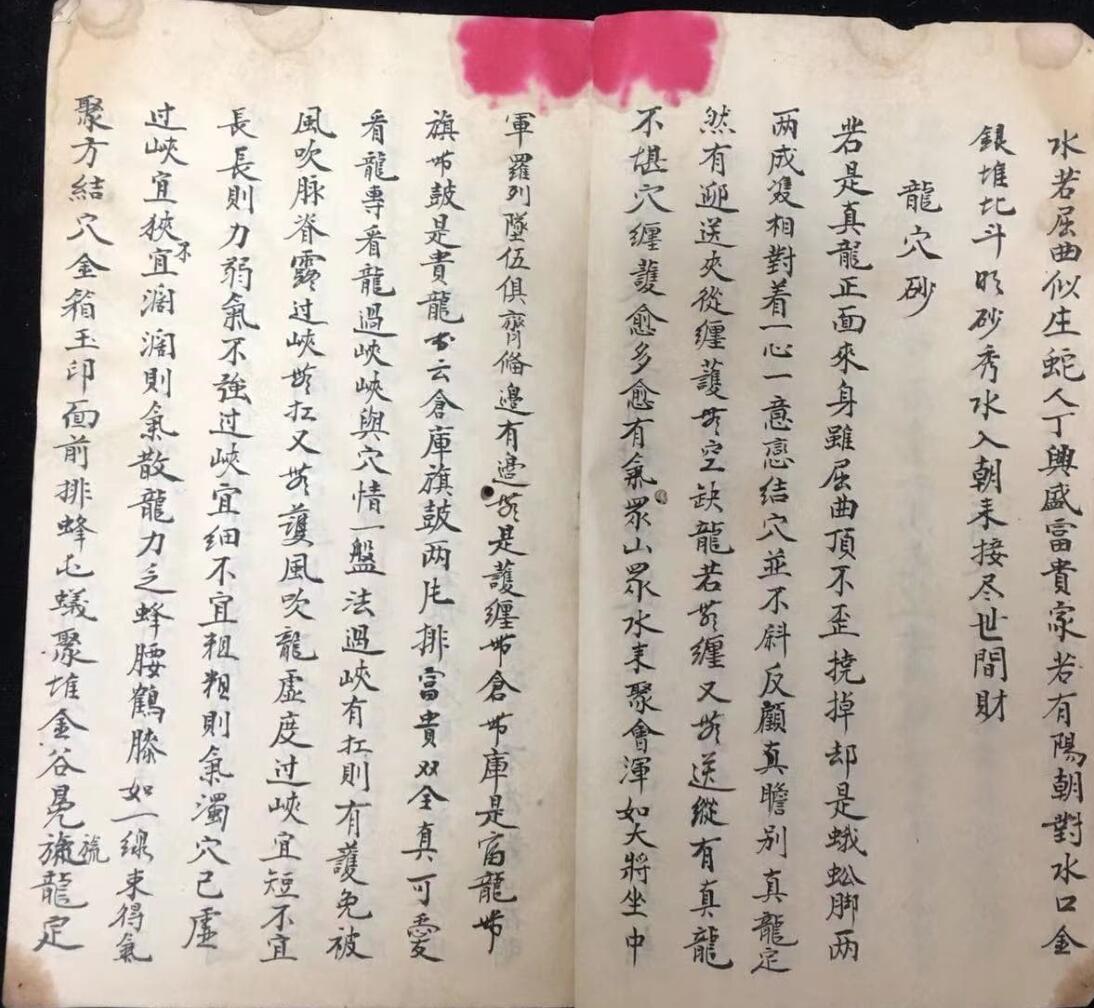 水若屈曲似生蛇人丁興盛富貴家若有陽朝對水口金
銀堆北斗明砂秀水入朝来接尽世間財
龍穴砂
若是真龍正面來身雖屈曲頂不歪撓掉却是蛾蚣脚两
两成双相對着一心一意戀結穴並不斜反顧真瞻别真龍定
然有迎送夾從纏護無空缺龍若無纏又無送縱有真龍
不堪穴纏護愈多愈有氣眾山眾水来聚會渾如大將坐中
軍羅列墜伍俱齊偹邊有邊無是護纏帶倉帶庫是富龍帶
旗帶鼓是貴龍古云倉庫旗鼓两片排富貴双全真可愛
看龍專看龍過峽峽與穴情一盤法過峽有扛則有護免被
風吹脉脊露过峽無扛又無護風吹龍虛度过峽宜短不宜
長長則力弱氣不強过峽宜细不宜粗粗則氣濁穴已虛
过峽宜狹不宜濶濶則氣散龍力乏蜂腰鶴膝如一線束得氣
聚方結穴金箱玉印面前排蜂屯蟻聚堆金谷晃旒龍定